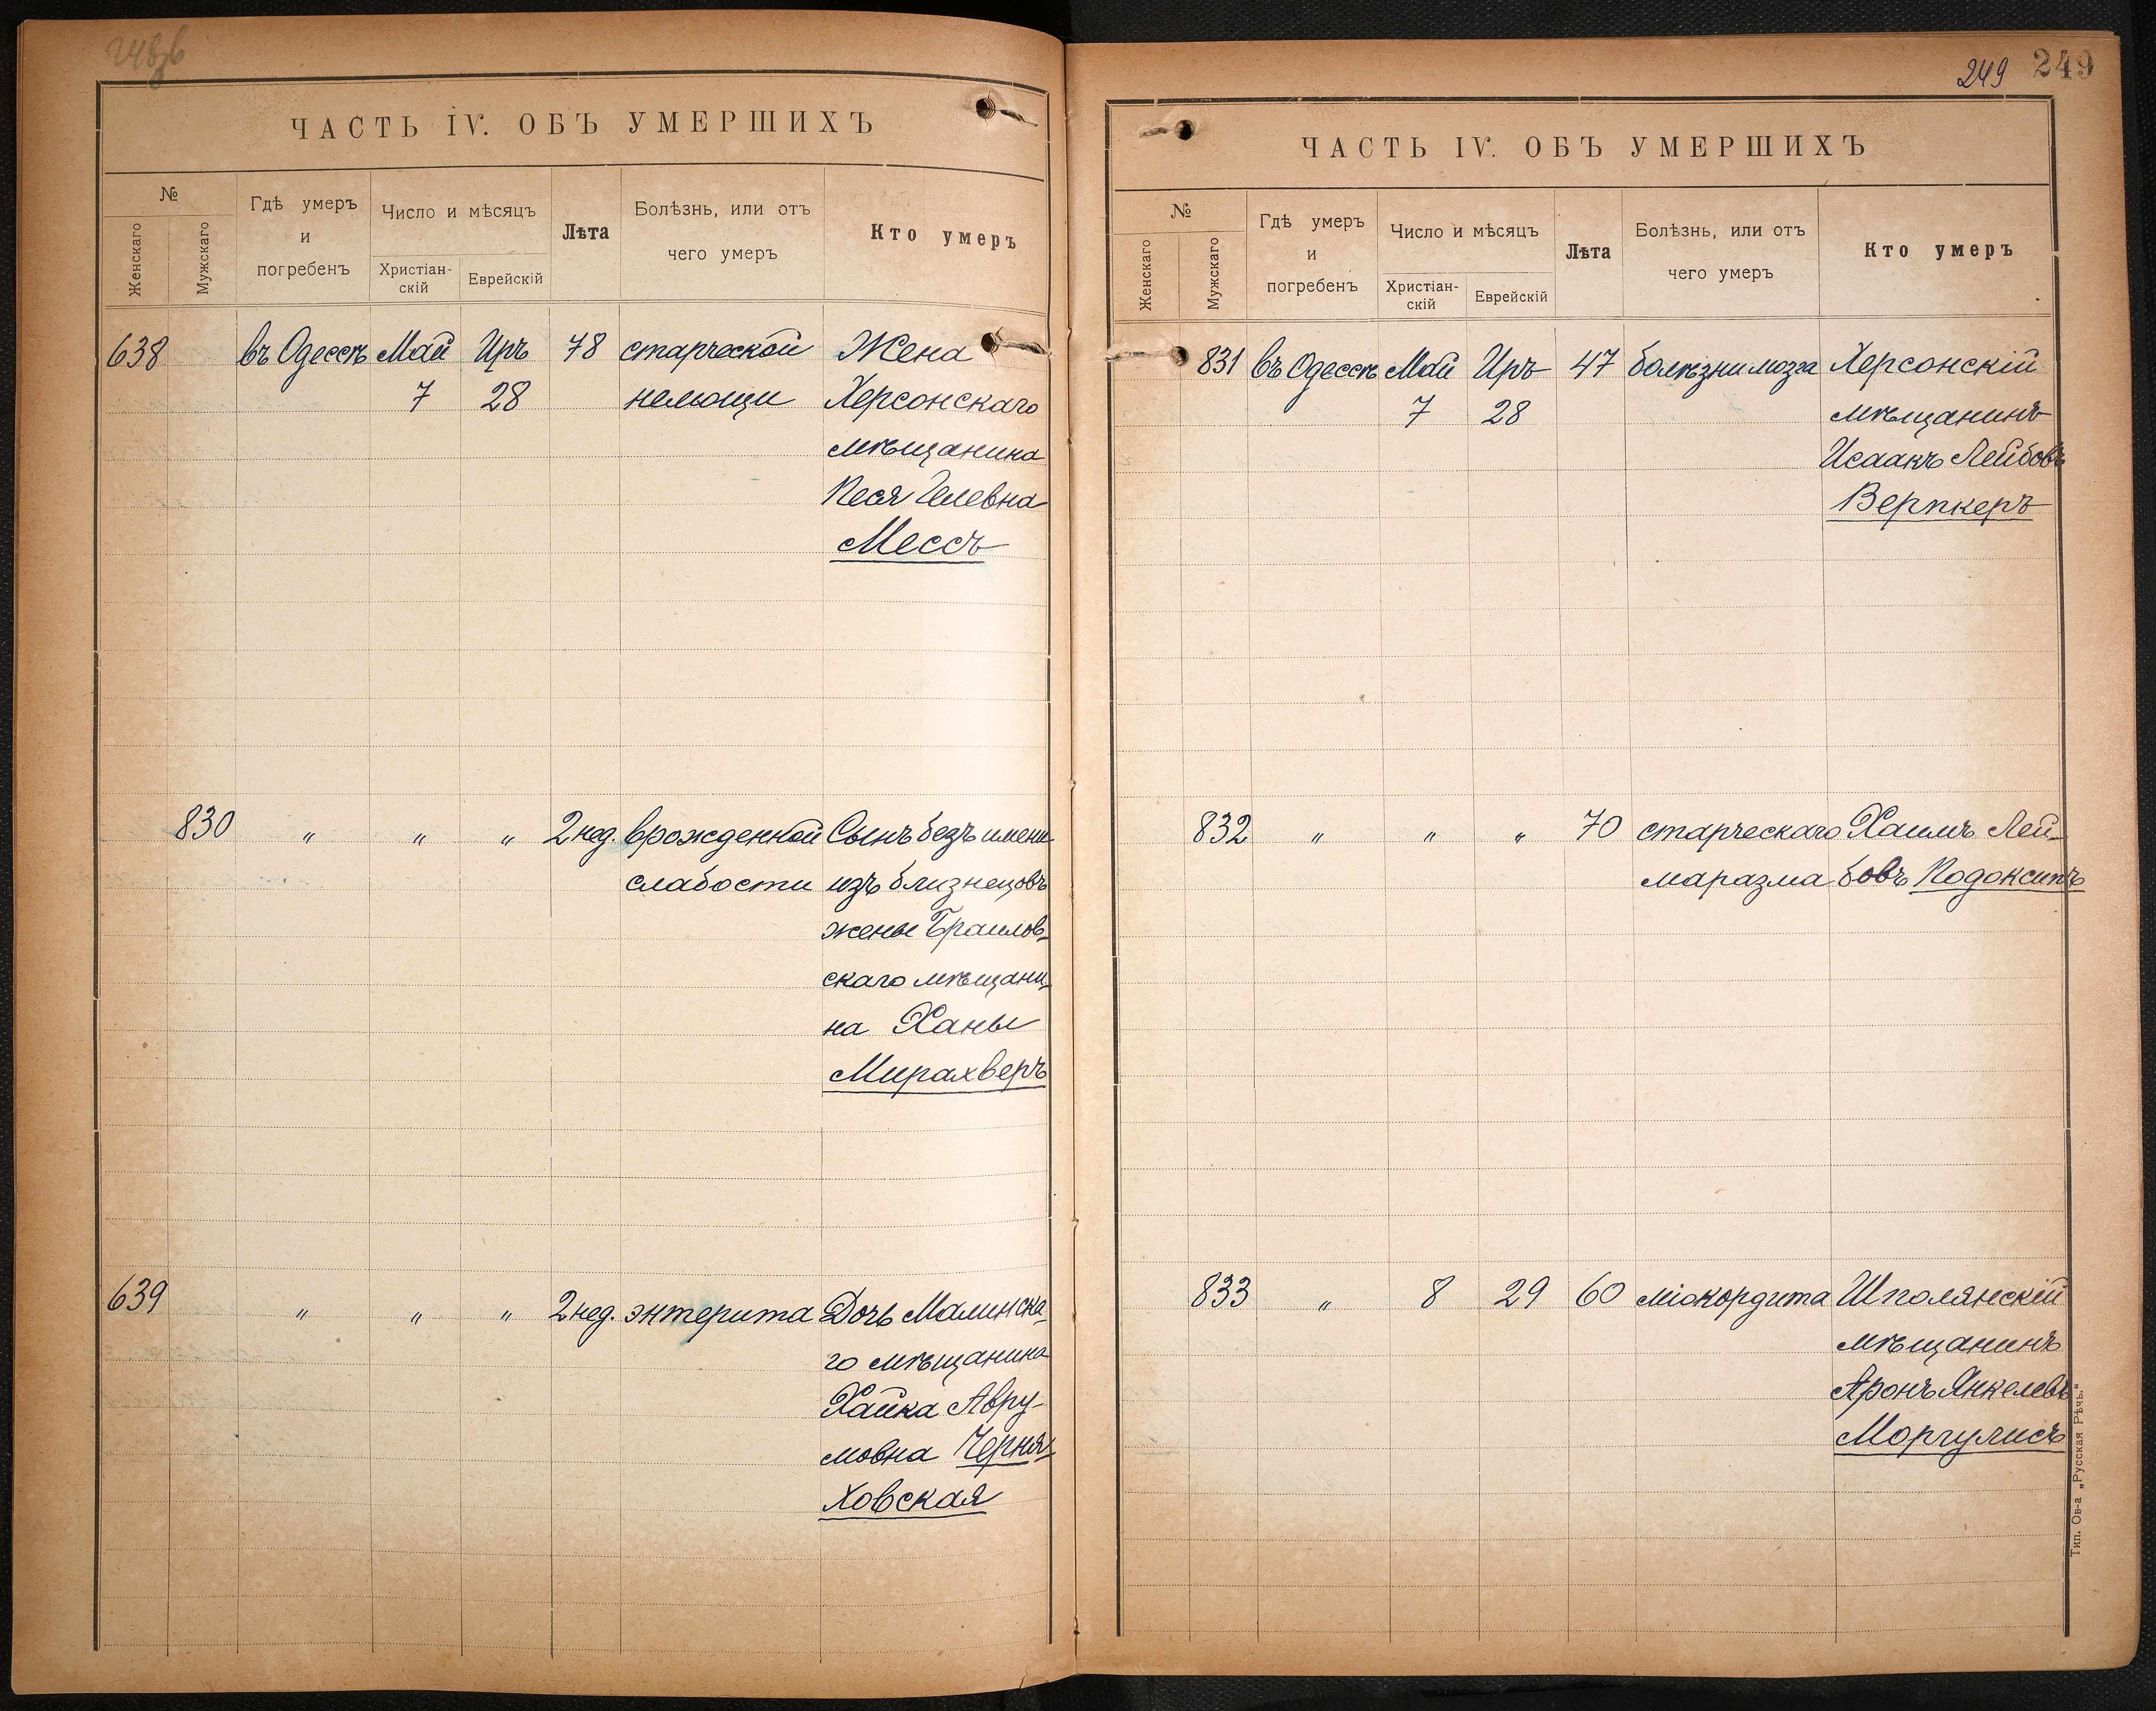 ЧАСТЬ IV. ОБЪ УМЕРШИХЪ
№
Женскаго
Мужскаго
Гдѣ умеръ
и
погребенъ
Число и мѣсяцъ
Христіан-
скій
Еврейскій
Лѣта
Болѣзнь, или отъ
чего умеръ
Кто умеръ
638 въ Одессѣ Май Иръ 78 старческой Жена
7 28 немощи Херсонскаго
мѣщанина
Песя
Мессъ
830 " " " 2 нед. врожденной Сынъ безъ имени
слабости изъ близнецовъ
жены Браилов-
скаго мѣщани-
на Ханы
Мирахверъ
639 " " " 2 нед. энтерита Дочь Малинска-
го мѣщанина
Хайка Авру-
мовна Черня-
ховская
249 249
ЧАСТЬ IV. ОБЪ УМЕРШИХЪ
№
Женскаго
Мужскаго
Гдѣ умеръ
и
погребенъ
Число и мѣсяцъ
Христіан-
скій
Еврейскій
Лѣта
Болѣзнь, или отъ
чего умеръ
Кто умеръ
831 въ Одессѣ Май Иръ 47 болѣзни мозга Херсонскій
7 28 мѣщанинъ
Исаакъ Лейбовъ
Верпкеръ
832 " " " 70 старческаго Хаимъ Лей-
маразма бовъ Подоксипъ
833 " 8 29 60 міокордита Шполянскій
мѣщанинъ
Аронъ Янкелевъ
Моргулисъ
Тип. Ов-а „Русская Рѣчь."